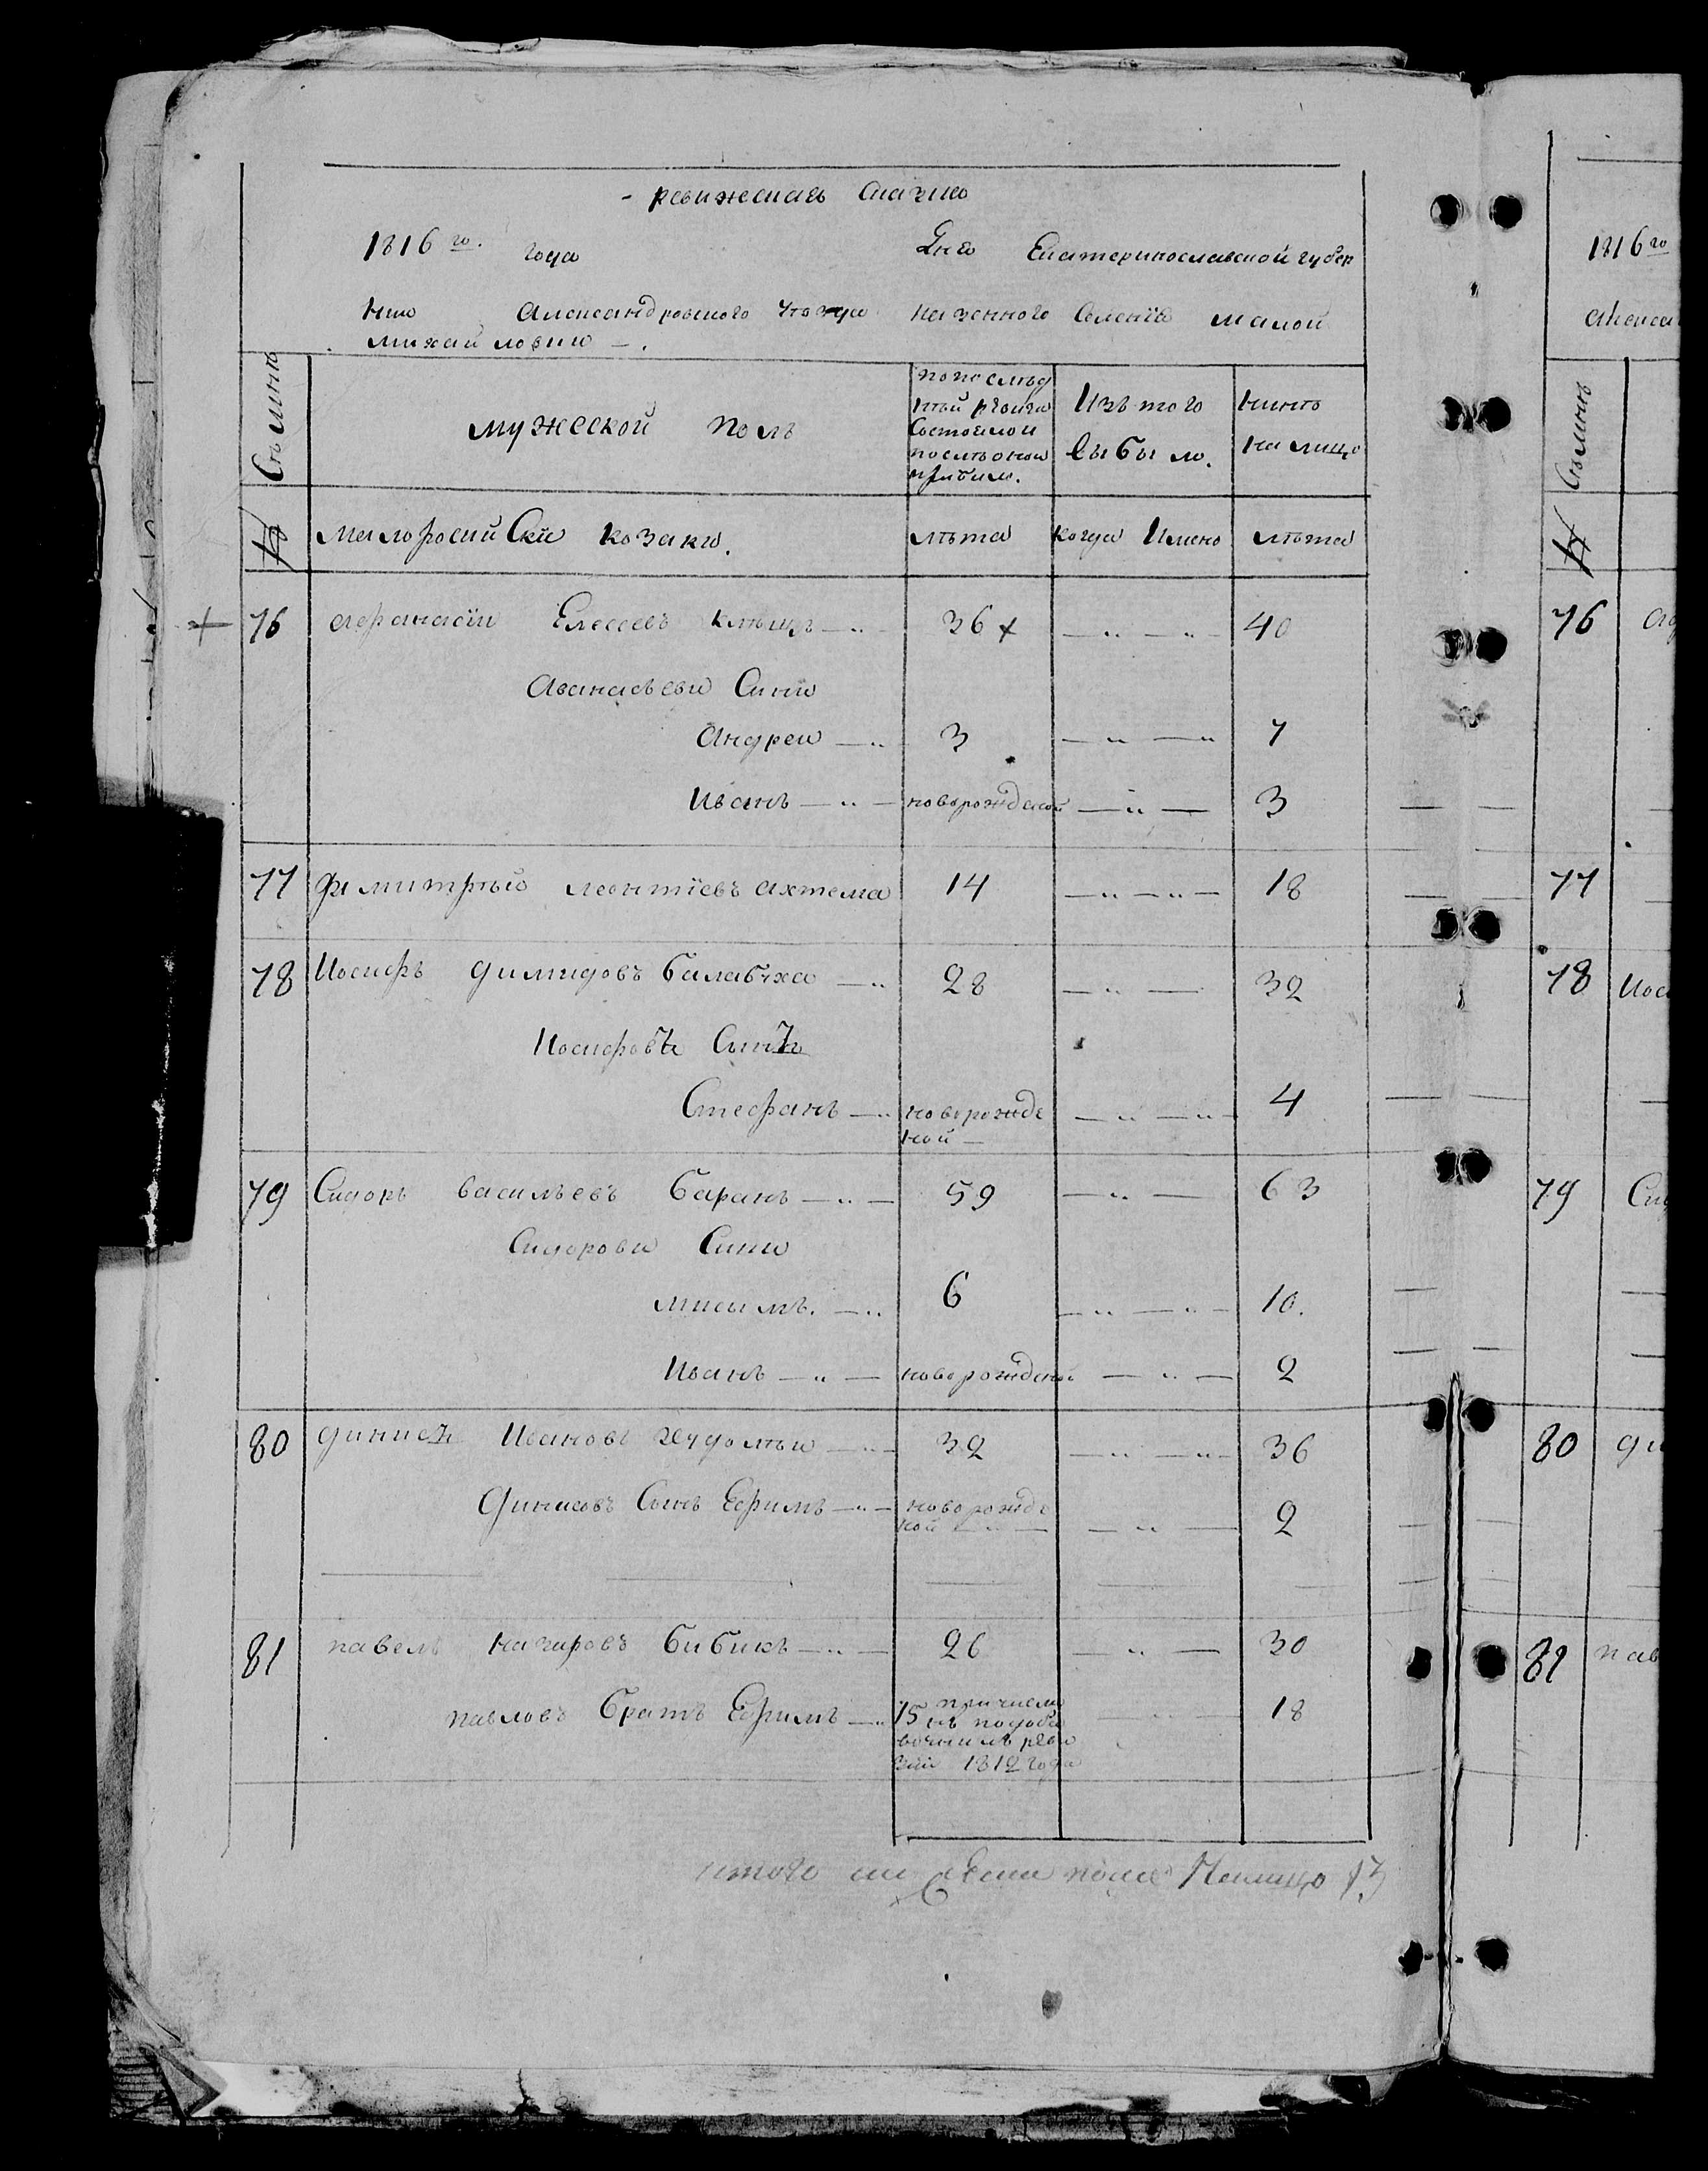 - ревижская сказка
1816 го. года Дня Екатеринославской губер
нии Александровского уезда казенного селения малой
михайловки - .
Съмини
мужеской полъ
попослѣд
ней ревизи
состояло и
послѣ оной
прибыло.
Изъ того
выбыло.
нинѣ
на лицо
№
малоросийские козаки.
лѣта
когда Имено
лѣта
76 афанасии Елесеевъ 36 40
Аванасьеви Сини
Андреи 3 7
Иванъ новорожденой 3
77 Димитрый леонтиевъ ахтема 14 18
78 Иосифъ димидовъ балабуха 28 32
Иосифовъ Синъ
Стефанъ новорожде 4
ной
79 Сидоръ васильевъ баранъ 59 63
Сидорови Сини
6 10.
Иванъ новорожденой 2
80 динисъ Ивановъ худолѣи 32 36
Динисовъ Сынъ Ефимъ новорожде 2
ной
81 павелъ бибикъ 26 30
павловъ братъ Ефимъ 15 18
1812 года
итого полу Налицо 13
1816 го
76
77
78 Иос
79 Сид
80 ди
81 пав